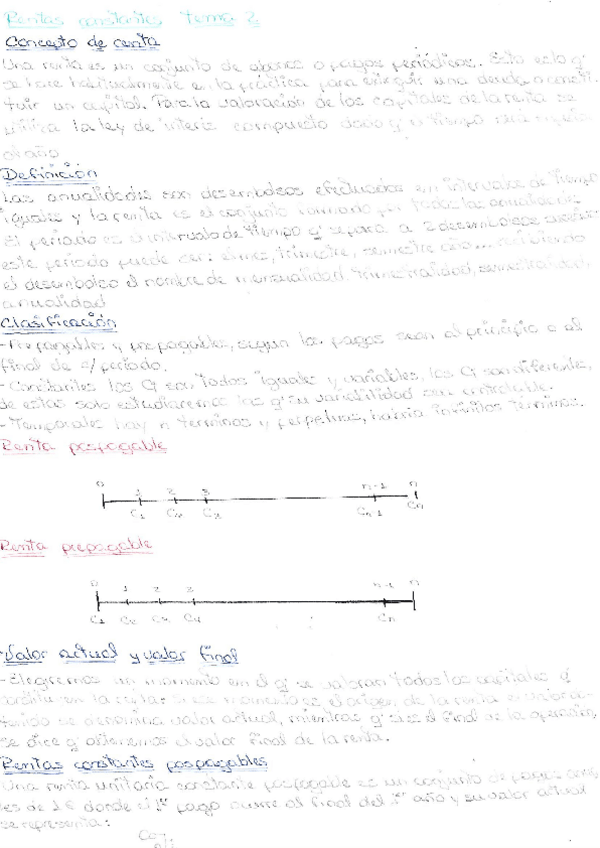 Rentas constantes tema 2
Concepto de renta
Una renta es un conjunto de abonos o pagos periódicos. Esto es lo q'
se hace habitualmente en la práctica para extinguir una deuda o consti
tuir un capital. Para la valoración de los capitales de la renta se
utiliza la ley de interés compuesto dado q' el tiempo será
al año
Definición
Las anualidades son desembolsos efectuados en intervalos de tiempo
iguales y la renta es el conjunto formado por todas las anualidades
El periodo es el intervalo de tiempo q' separa a 2 desembolsos
este periodo puede ser: el mes, trimestre, semestre año... recibiendo
el desembolso el nombre de mensualidad trimestralidad, semestralidad,
anualidad
Clasificación
- Prepagables y pospagables, según los pagos sean al principio o al
final de c/ periodo.
- Constantes los C1 son todos iguales y variables, los C1 son diferentes,
de estas solo estudiaremos las q' su variabilidad sea controlable.
- Temporales hay n terminos y perpetuas, habría infinitos términos.
Renta pospagable
0 1 2 3 n-1 n
C1 C2 Cn-1 Cn
Renta prepagable
0 1 2 3 n-1 n
C1 C2 Cn
Valor actual y valor final
- Elegiremos un momento en el q' se valoran todos los capitales q'
constituyen la renta: si ese momento es el origen de la renta el valor ob-
tenido se denomina valor actual, mientras q' si es el final de la operación,
se dice q' obtenemos el valor final de la renta.
Rentas constantes pospagables
Una renta unitaria constante pospagable es un conjunto de pagos anua
les de 1€ donde el 1er pago ocurre al final del 1er año y su valor actual
se representa: